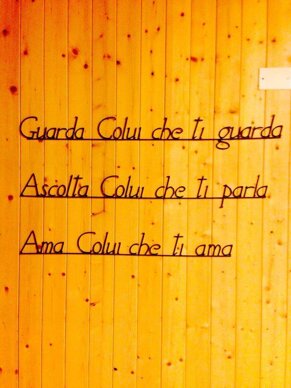 Guarda Colui che ti guarda
Ascolta Colui che ti parla
Ama Colui che ti ama